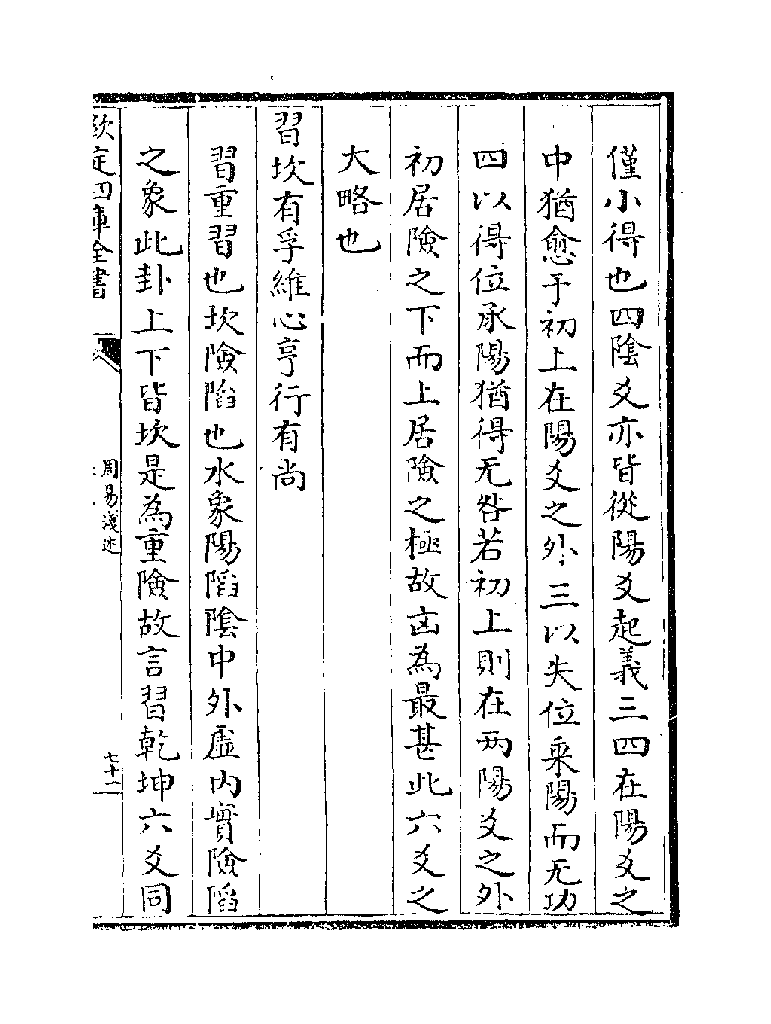 僅小得也四陰爻亦皆從陽爻起義三四在陽爻之
中猶愈于初上在陽爻之外三以失位乘陽而无功
四以得位承陽猶得无咎若初上則在兩陽爻之外
初居險之下而上居險之極故凶為最甚此六爻之
大略也
習坎有孚維心亨行有尚
習重習也坎險陷也水象陽陷陰中外虛内實險陷
之象此卦上下皆坎是為重險故言習乾坤六爻同
欽定四庫全書
周易淺述
七十二